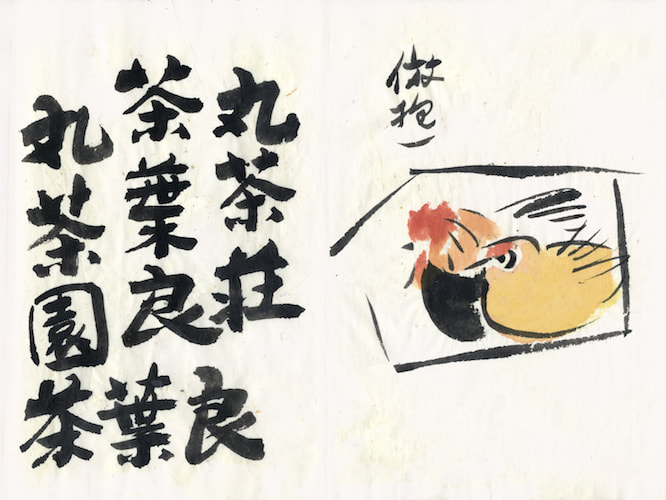 倣抱一
丸茶荘良
茶葉良葉
丸茶園茶